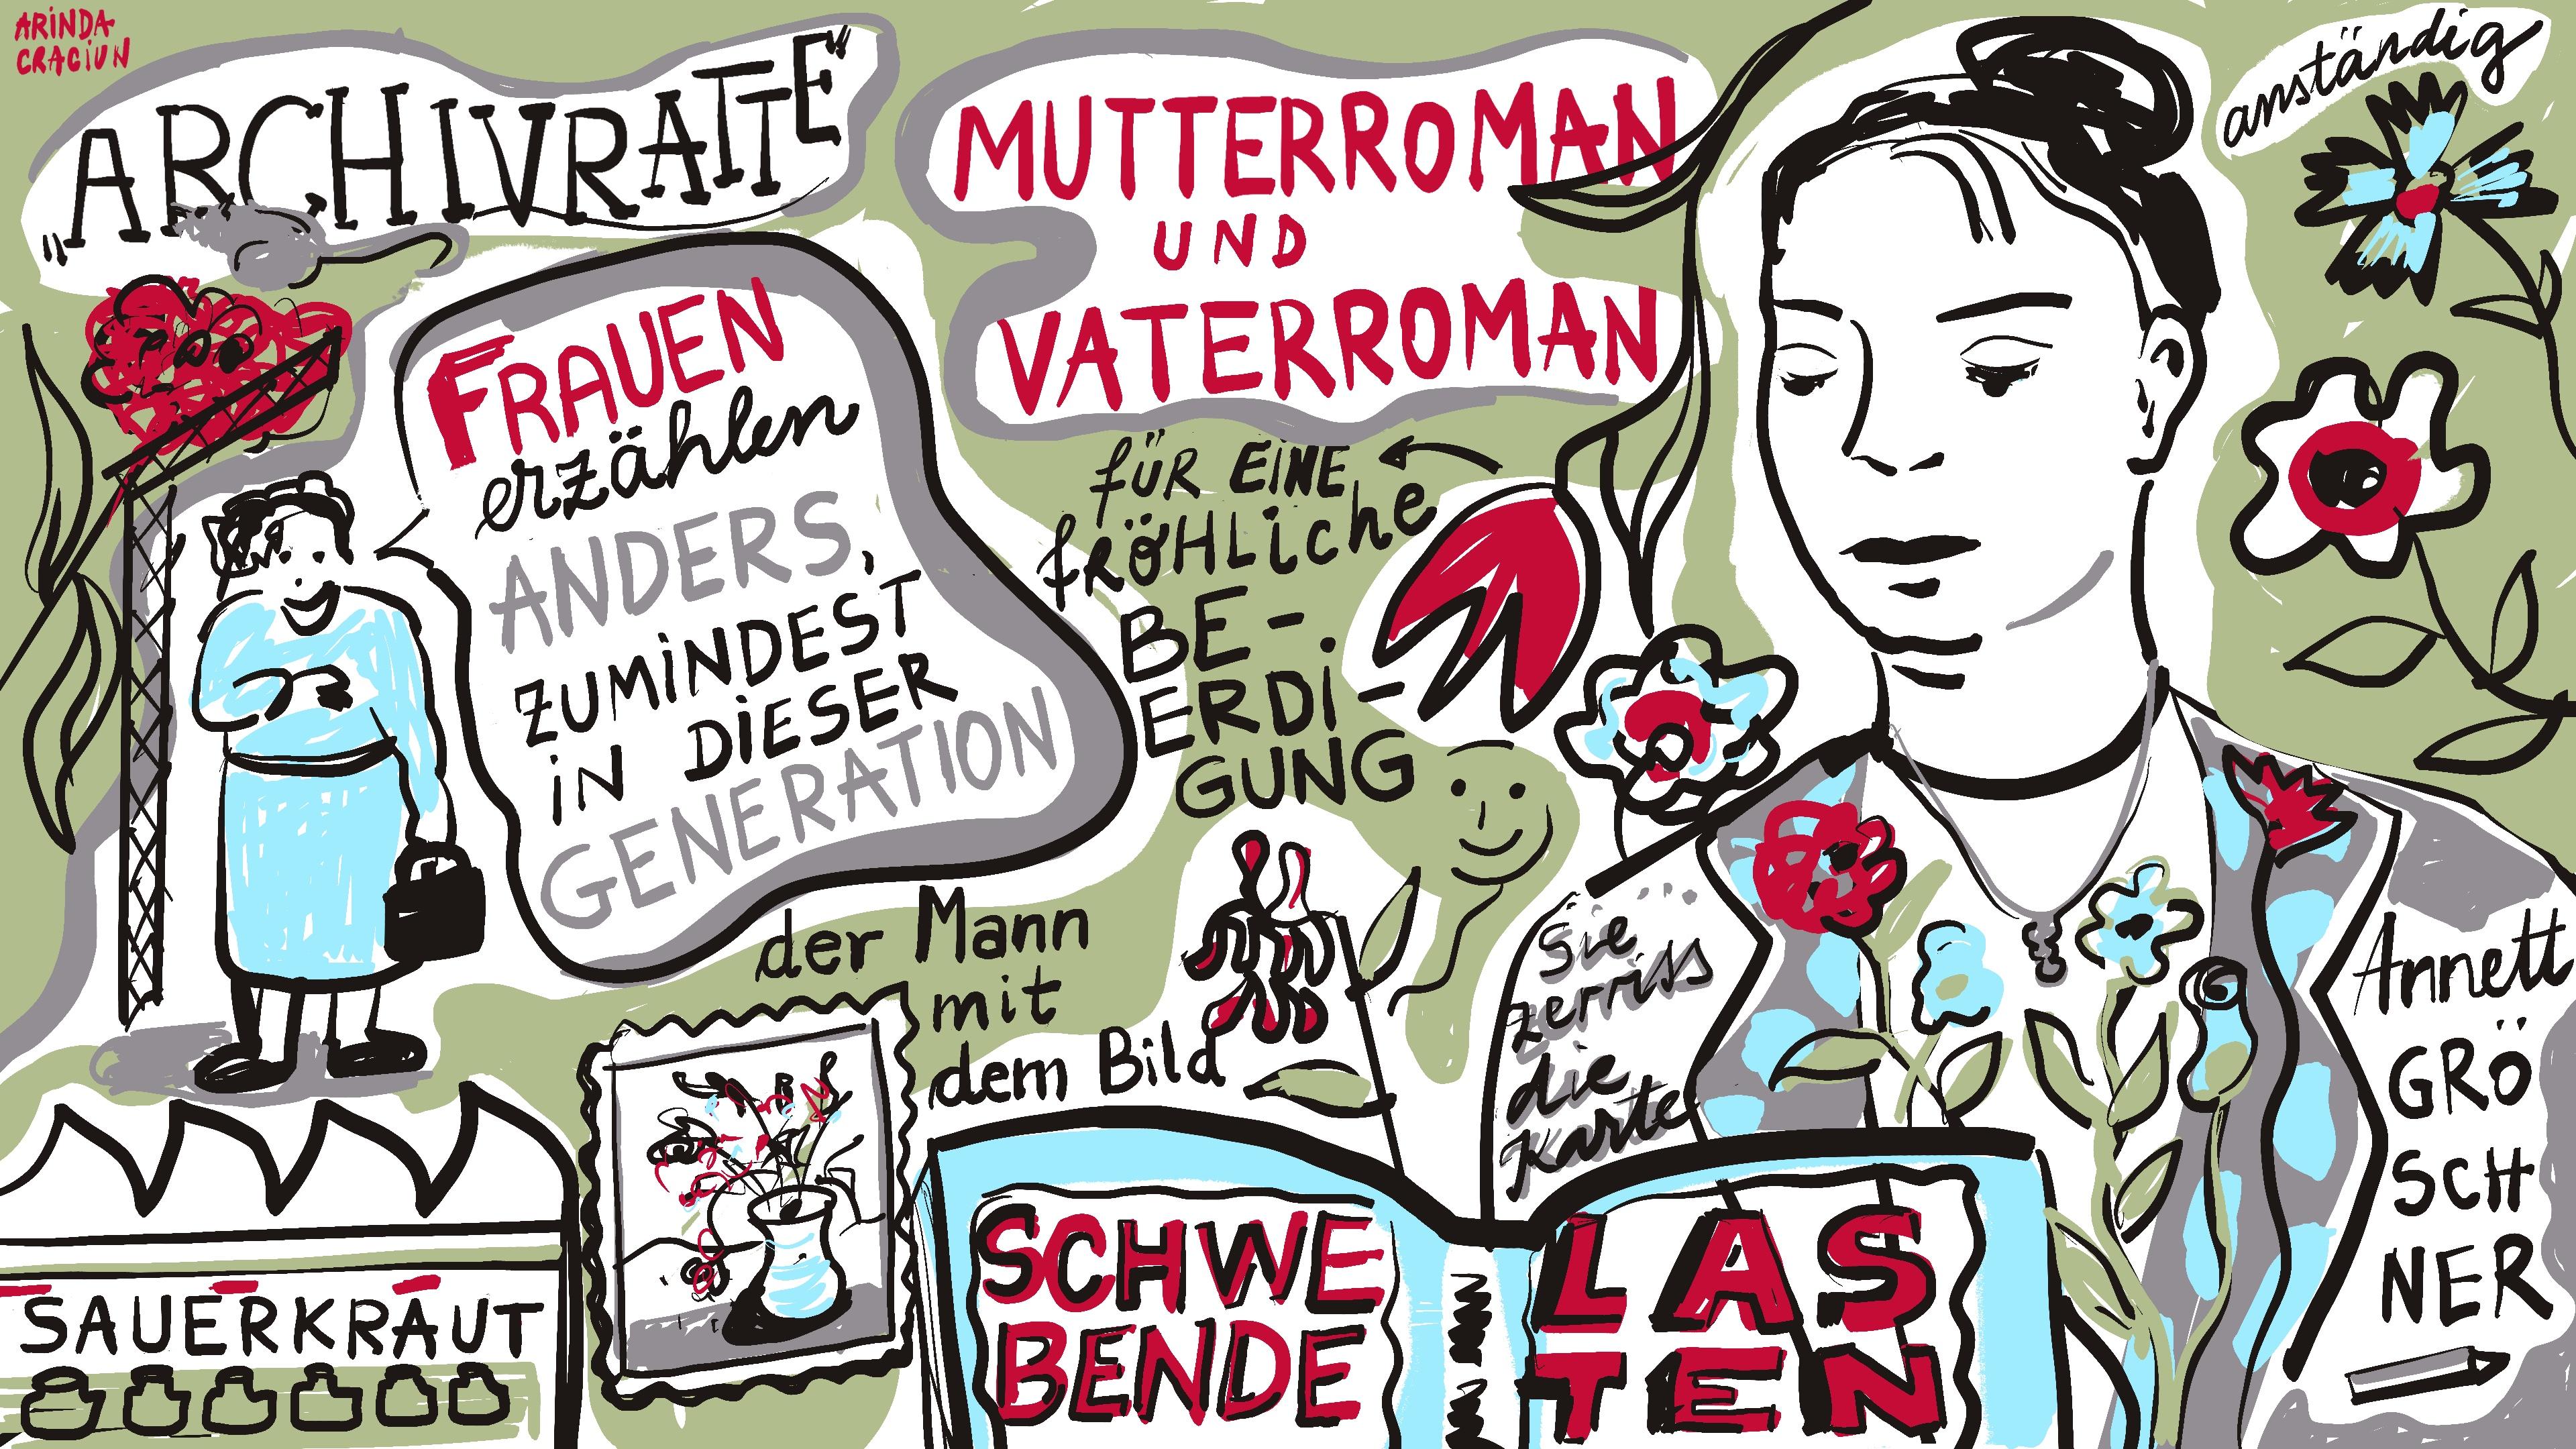 ARINDA
CRACIUN
„ARCHIVRATTE"
FRAUEN
erzählen
ANDERS,
ZUMINDEST
IN DIESER
GENERATION
MUTTERROMAN
UND
VATERROMAN
FÜR EINE
FRÖHLICHE
BE-
ERDI-
GUNG
anständig
der Mann
mit
dem Bild
Sie
zerriss
die
Karte
SAUERKRAUT
SCHWE
BENDE
LAS
TEN
Annett
GRÖ
SCH
NER